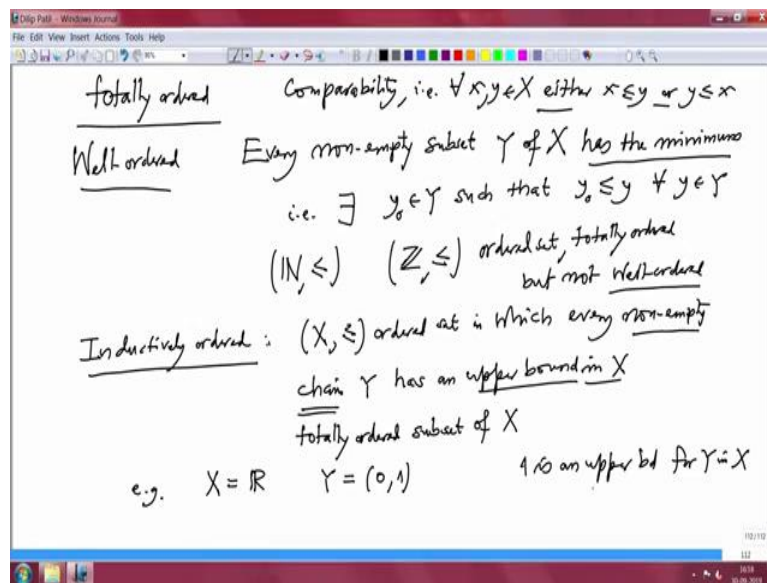 Dilip Patil - Windows Journal
File Edit View Insert Actions Tools Help
totally ordered Comparability, i.e. ∀ x,y∈X either x≤y or y≤x
Well-ordered Every non-empty subset Y of X has the minimum
i.e. ∃ y₀∈Y such that y₀≤y ∀ y∈Y
(ℕ,≤) (ℤ,≤) ordered set, totally ordered
but not well-ordered
Inductively ordered : (X,≤) ordered set in which every non-empty
chain Y has an upper bound in X
totally ordered subset of X
e.g. X=ℝ Y=(0,1) 1 is an upper bd for Y in X
112/112
112